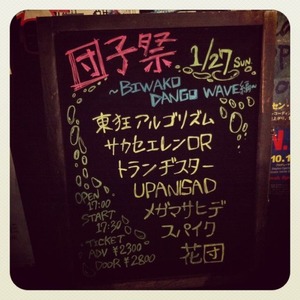 団子祭 1/27 SUN
~BIWAKO DANGO WAVE編~
東狂アルゴリズム
サカセエレンOR
トランヂスター
UPANISAD
メガマサヒデ
スパイク
花団
OPEN
17:00
START
17:30
TICKET
ADV ¥2300
DOOR ¥2800